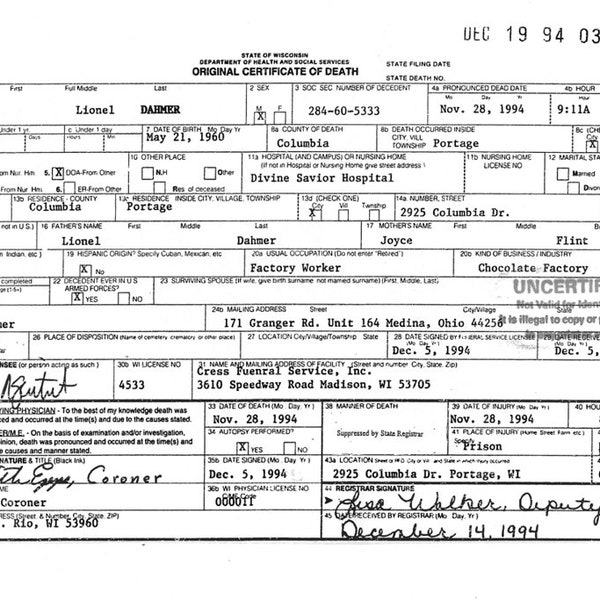 DEC 19 94 03
STATE OF WISCONSIN
DEPARTMENT OF HEALTH AND SOCIAL SERVICES
ORIGINAL CERTIFICATE OF DEATH
STATE FILING DATE
STATE DEATH NO.
First Full Middle Last 2 SEX 3 SOC SEC NUMBER OF DECEDENT 4a PRONOUNCED DEAD DATE 4b HOUR
Mo Day Yr
Lionel DAHMER M X F 284-60-5333 Nov. 28, 1994 9:11A
Under 1 yr. c Under 1 day 7 DATE OF BIRTH Mo Day Yr 8a COUNTY OF DEATH 8b DEATH OCCURRED INSIDE 8c (CHE
Days Hours Min May 21, 1960 Columbia CITY, VILL TOWNSHIP Portage City
10 OTHER PLACE 11a HOSPITAL (AND CAMPUS) OR NURSING HOME 11b NURSING HOME LICENSE NO 12 MARITAL STA
(If not in Hospital or Nursing Home give street address)
From Nur. Hm 5. X DOA-From Other N.H Other Married
From Nur Hm 6. ER-From Other Res of deceased Divine Savior Hospital Divo
13b RESIDENCE - COUNTY 13c RESIDENCE INSIDE CITY, VILLAGE, TOWNSHIP 13d (CHECK ONE) 14a. NUMBER, STREET
Columbia Portage X City Vill Township 2925 Columbia Dr.
not in U.S.) 16 FATHER'S NAME 17 MOTHER'S NAME
Lionel Dahmer Joyce Flint
Indian, etc. 19 HISPANIC ORIGIN? Specify Cuban, Mexican, etc 20a USUAL OCCUPATION (Do not enter "Retired") 20b KIND OF BUSINESS / INDUSTRY
X No Factory Worker Chocolate Factory
completed 22 DECEDENT EVER IN U S ARMED FORCES? 23 SURVIVING SPOUSE (If wife, give birth surname not married surname) (First, Middle, Last)
X YES NO
UNCERTIF
Not Valid for Iden
It is illegal to copy or
24b MAILING ADDRESS Street City/Village State
mer 171 Granger Rd. Unit 164 Medina, Ohio 44256
26 PLACE OF DISPOSITION (Name of cemetery, crematory or other place) 27 LOCATION City/Village/Township State 28 DATE SIGNED BY FUNERAL SERVICE LICENSEE
(Mo Day, Yr)
Dec. 5, 1994 Dec. 5,
30b WI LICENSE NO 31 NAME AND MAILING ADDRESS OF FACILITY (Street and number City, State, Zip)
4533 Cress Fuenral Service, Inc.
3610 Speedway Road Madison, WI 53705
YING PHYSICIAN - To the best of my knowledge death was
occurred at the time(s) and due to the causes stated.
33 DATE OF DEATH (Mo Day, Yr) 38 MANNER OF DEATH 39 DATE OF INJURY (Mo Day Yr) 40
Nov. 28, 1994 Suppressed by State Registrar Nov. 28, 1994
ER/M.E. - On the basis of examination and/or investigation,
inion, death was pronounced and occurred at the time(s)
and causes and manner stated.
34 AUTOPSY PERFORMED? 41 PLACE OF INJURY (Home Street Farm etc) Specify
X YES NO Prison
GNATURE & TITLE (Black Ink) 35b DATE SIGNED (Mo Day Yr) 43a LOCATION
Coroner Dec. 5, 1994 2925 Columbia Dr. Portage, WI
NAME 36b WI PHYSICIAN LICENSE NO 44 REGISTRAR SIGNATURE
Coroner 000011 Lisa Walker, Deputy
RESS (Street & Number, City, State, ZIP) 45 DATE RECEIVED BY REGISTRAR (Mo Day, Yr)
. Rio, WI 53960 December 14, 1994